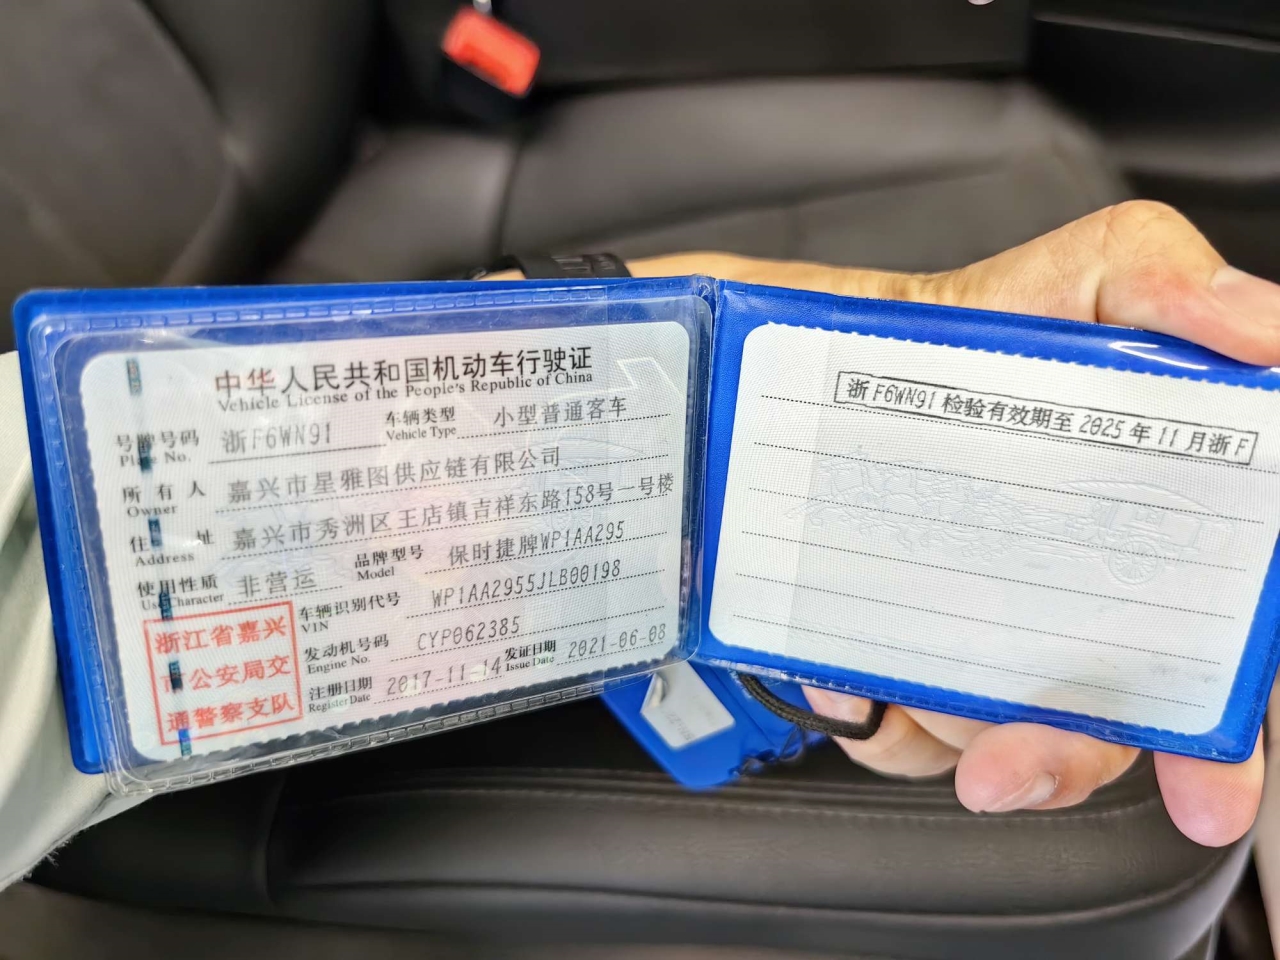 中华人民共和国机动车行驶证
Vehicle License of the People's Republic of China
号牌号码 浙F6WN91 车辆类型 小型普通客车
Plate No. Vehicle Type
所有人 嘉兴市星雅图供应链有限公司
Owner
住址 嘉兴市秀洲区王店镇吉祥东路158号一号楼
Address
使用性质 非营运 品牌型号 保时捷牌WP1AA295
Use Character Model
车辆识别代号 WP1AA2955JLB00198
VIN
发动机号码 CYP062385
Engine No.
注册日期 2017-11-14 发证日期 2021-06-08
Register Date Issue Date
浙江省嘉兴
市公安局交
通警察支队
浙F6WN91检验有效期至2025年11月浙F